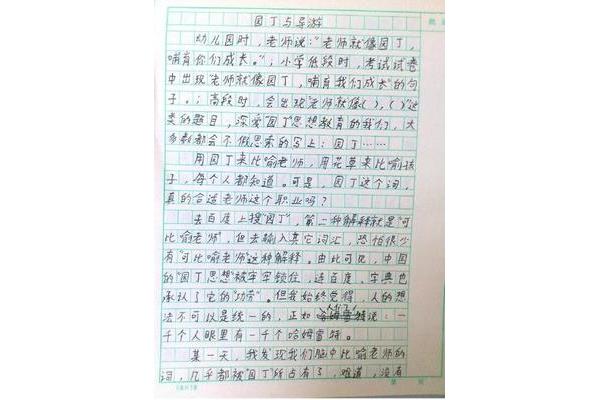 园丁与导游
幼儿园时,老师说:“老师就像园丁,
哺育你们成长。”;小学低段时,考试试卷
中出现“老师就像园丁,哺育我们成长”的句
子。;高段时,会出现“老师就像( ),( )”这
类的题目,深爱“园丁”思想教育的我们,大
多数都会不假思索的写上:园丁……
用园丁来比喻老师,用花草来比喻孩
子,每个人都知道。可是,园丁这个词,
真的合适老师这个职业吗?
去百度上搜“园丁”,第二种解释就是“可
比喻老师”,但去输入其它词汇,恐怕很少
有“可比喻老师”这种解释。由此可见,中国
的“园丁思想”被牢牢锁住,连百度、字典也
承认了它的“功劳”。但我始终觉得,人的想
法不可以是统一的,正如人们说:一
千个人眼里有一千个哈姆雷特。
某一天,我发现我们脑中比喻老师的
词,几乎都被“园丁”所占有了,难道,没有